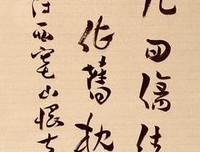 几回傷往
依舊枕
西塞山懷古